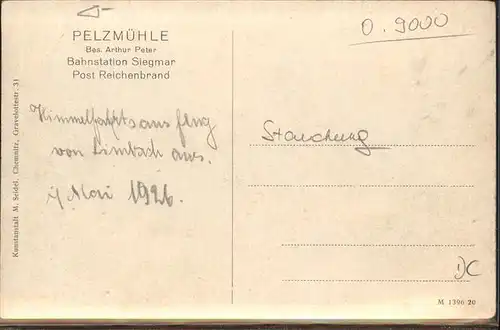 PELZMÜHLE
Bes. Arthur Peter
Bahnstation Siegmar
Post Reichenbrand
Himmelfahrtsausflug
von Limbach aus.
Mai 1926.
Kunstanstalt M. Seidel, Chemnitz, Gravelottestr. 31
0.9000
DC
M 1396 20